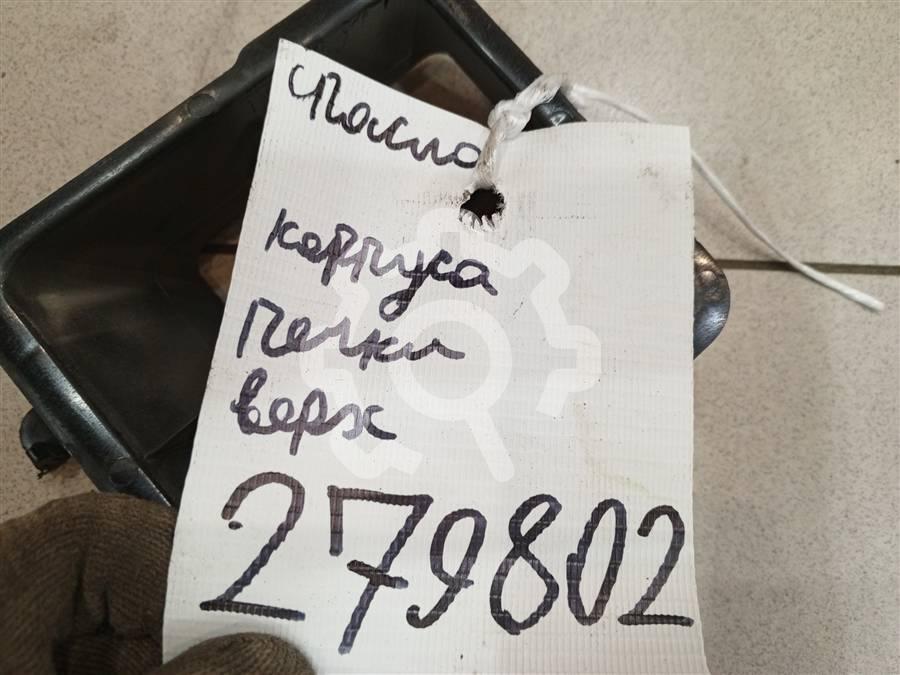 часть
корпуса
печки
верх
279802